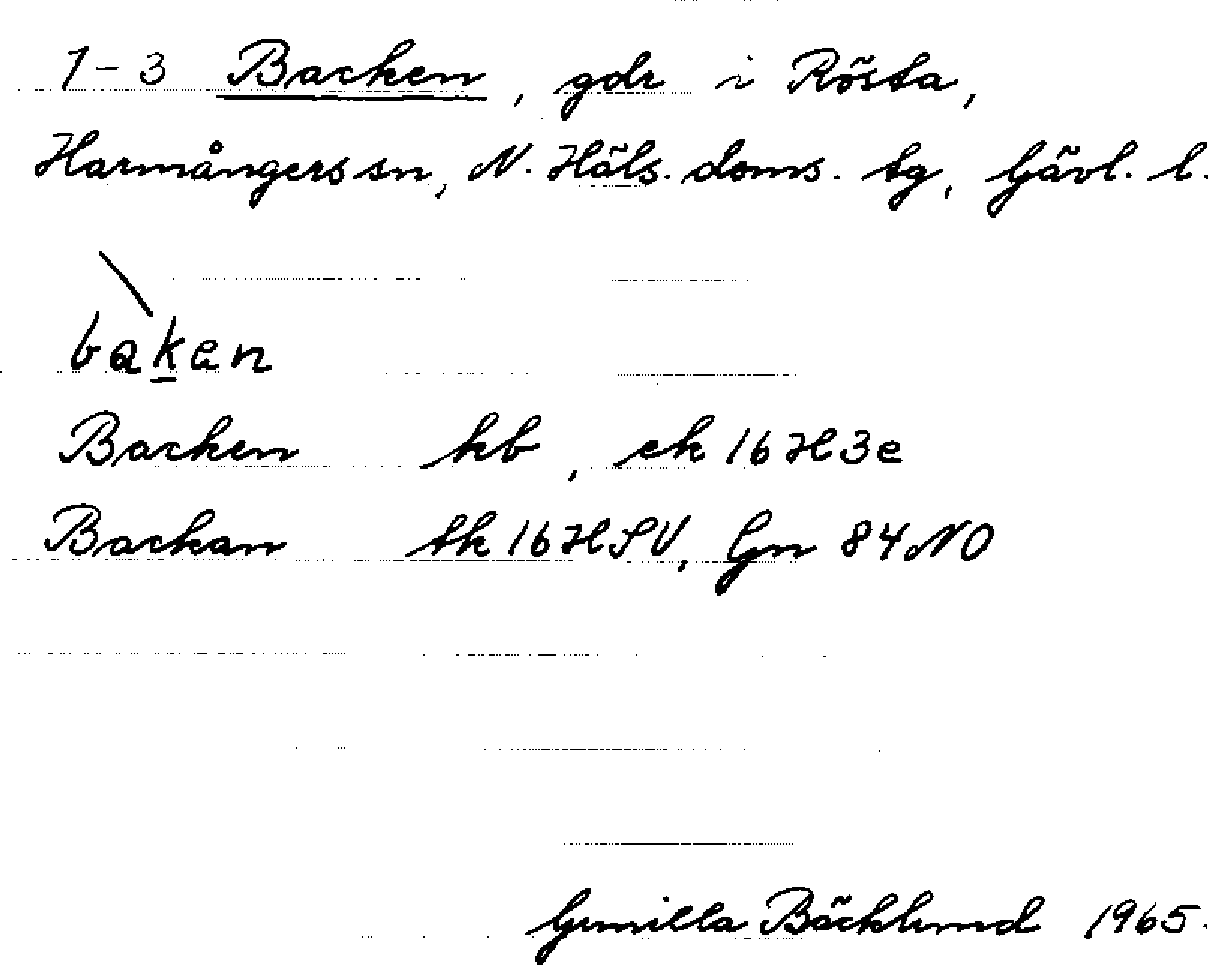 1-3 Backen, gdr i Rösta,
Harmångers sn, N. Häls. doms. tg, Gävl. l.
baken
Backen kb, ek 16H3e
Backan tk 16HSV, Gn 84NO
Gunilla Bäcklund 1965.